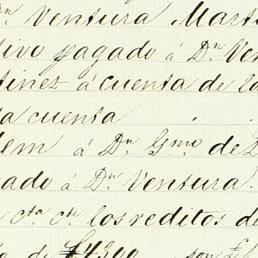 Dn. Ventura Mart
tivo pagado á Dn. Ven
tinez á cuenta de la
ta cuenta
dem á Dn. Gmo. de L
gado á Dn. Ventura.
cta cte los reditos de
de $4300 son $